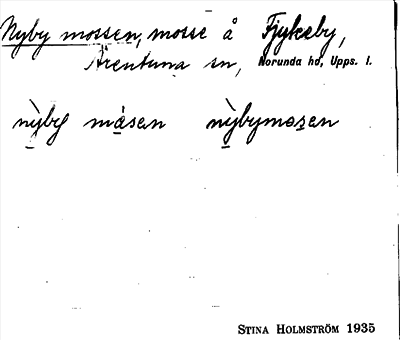 Nyby mossen, mosse å Fjykeby,
Ärentuna sn, Norunda hd, Upps. l.
nỳby måsen nỳbymosen
STINA HOLMSTRÖM 1935